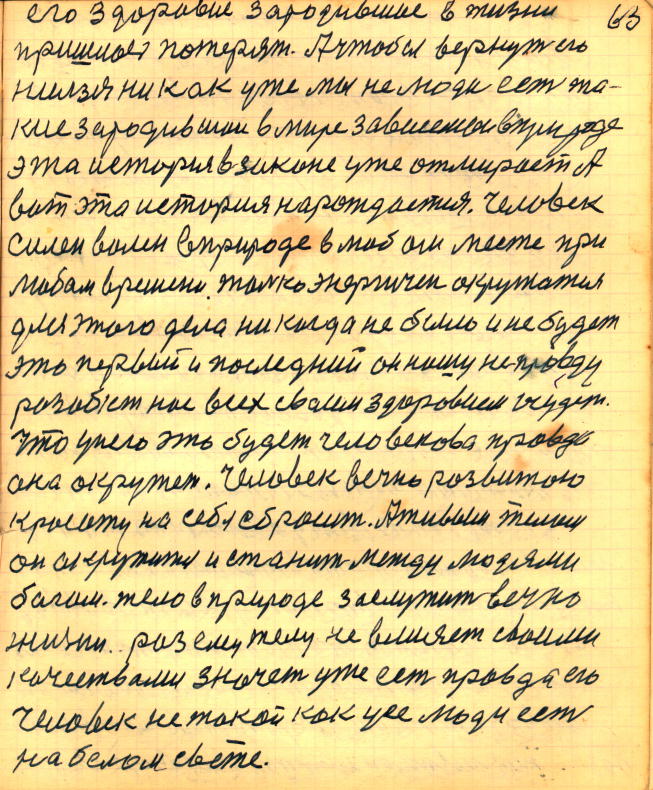 его здоровие зародившае в жизни 63
пришлос потерят. А чтобы вернут его
нилзя никак уже мы не люди ест та-
кие зародившаи в мире зависемаи в природе
эта история в законе уже отмирает А
вот эта история нарождается. Человек
силен волен в природе в любом месте при
любам времени. толко энергичен окружатия
для этого дела никогда не было и не будет
это первый и последний он нашу неправду
розобют нас всех своим здоровием
что у него это будет человекова правда
она окружет. Человек вечно розвитою
красоту на себя сбросит. А живым телом
он окружится и станит между людями
богам. тело в природе заслужит вечно
жизни. роз ему телу не влияет своими
качествами значет уже ест правда его
Человек не такой как усе люди ест
на белом свете.